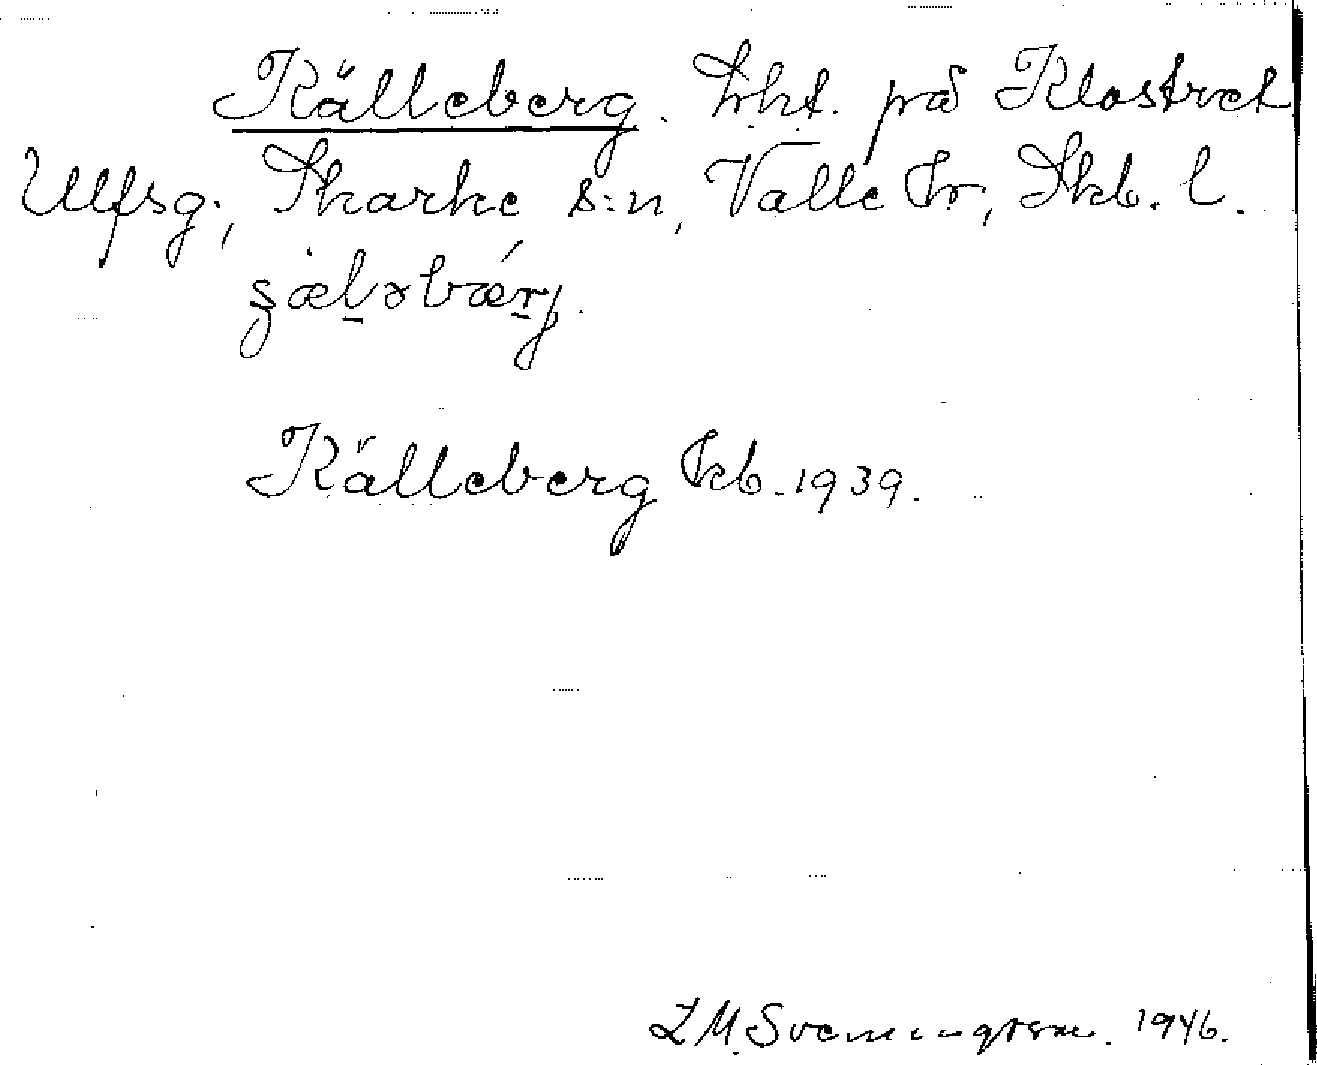 Källeberg. Lht. på Klostret
Ulfsg., Skarke s:n, Valle hr, Skb. l.
Källeberg Jeb. 1939.
L M. Svenningsson. 1946.